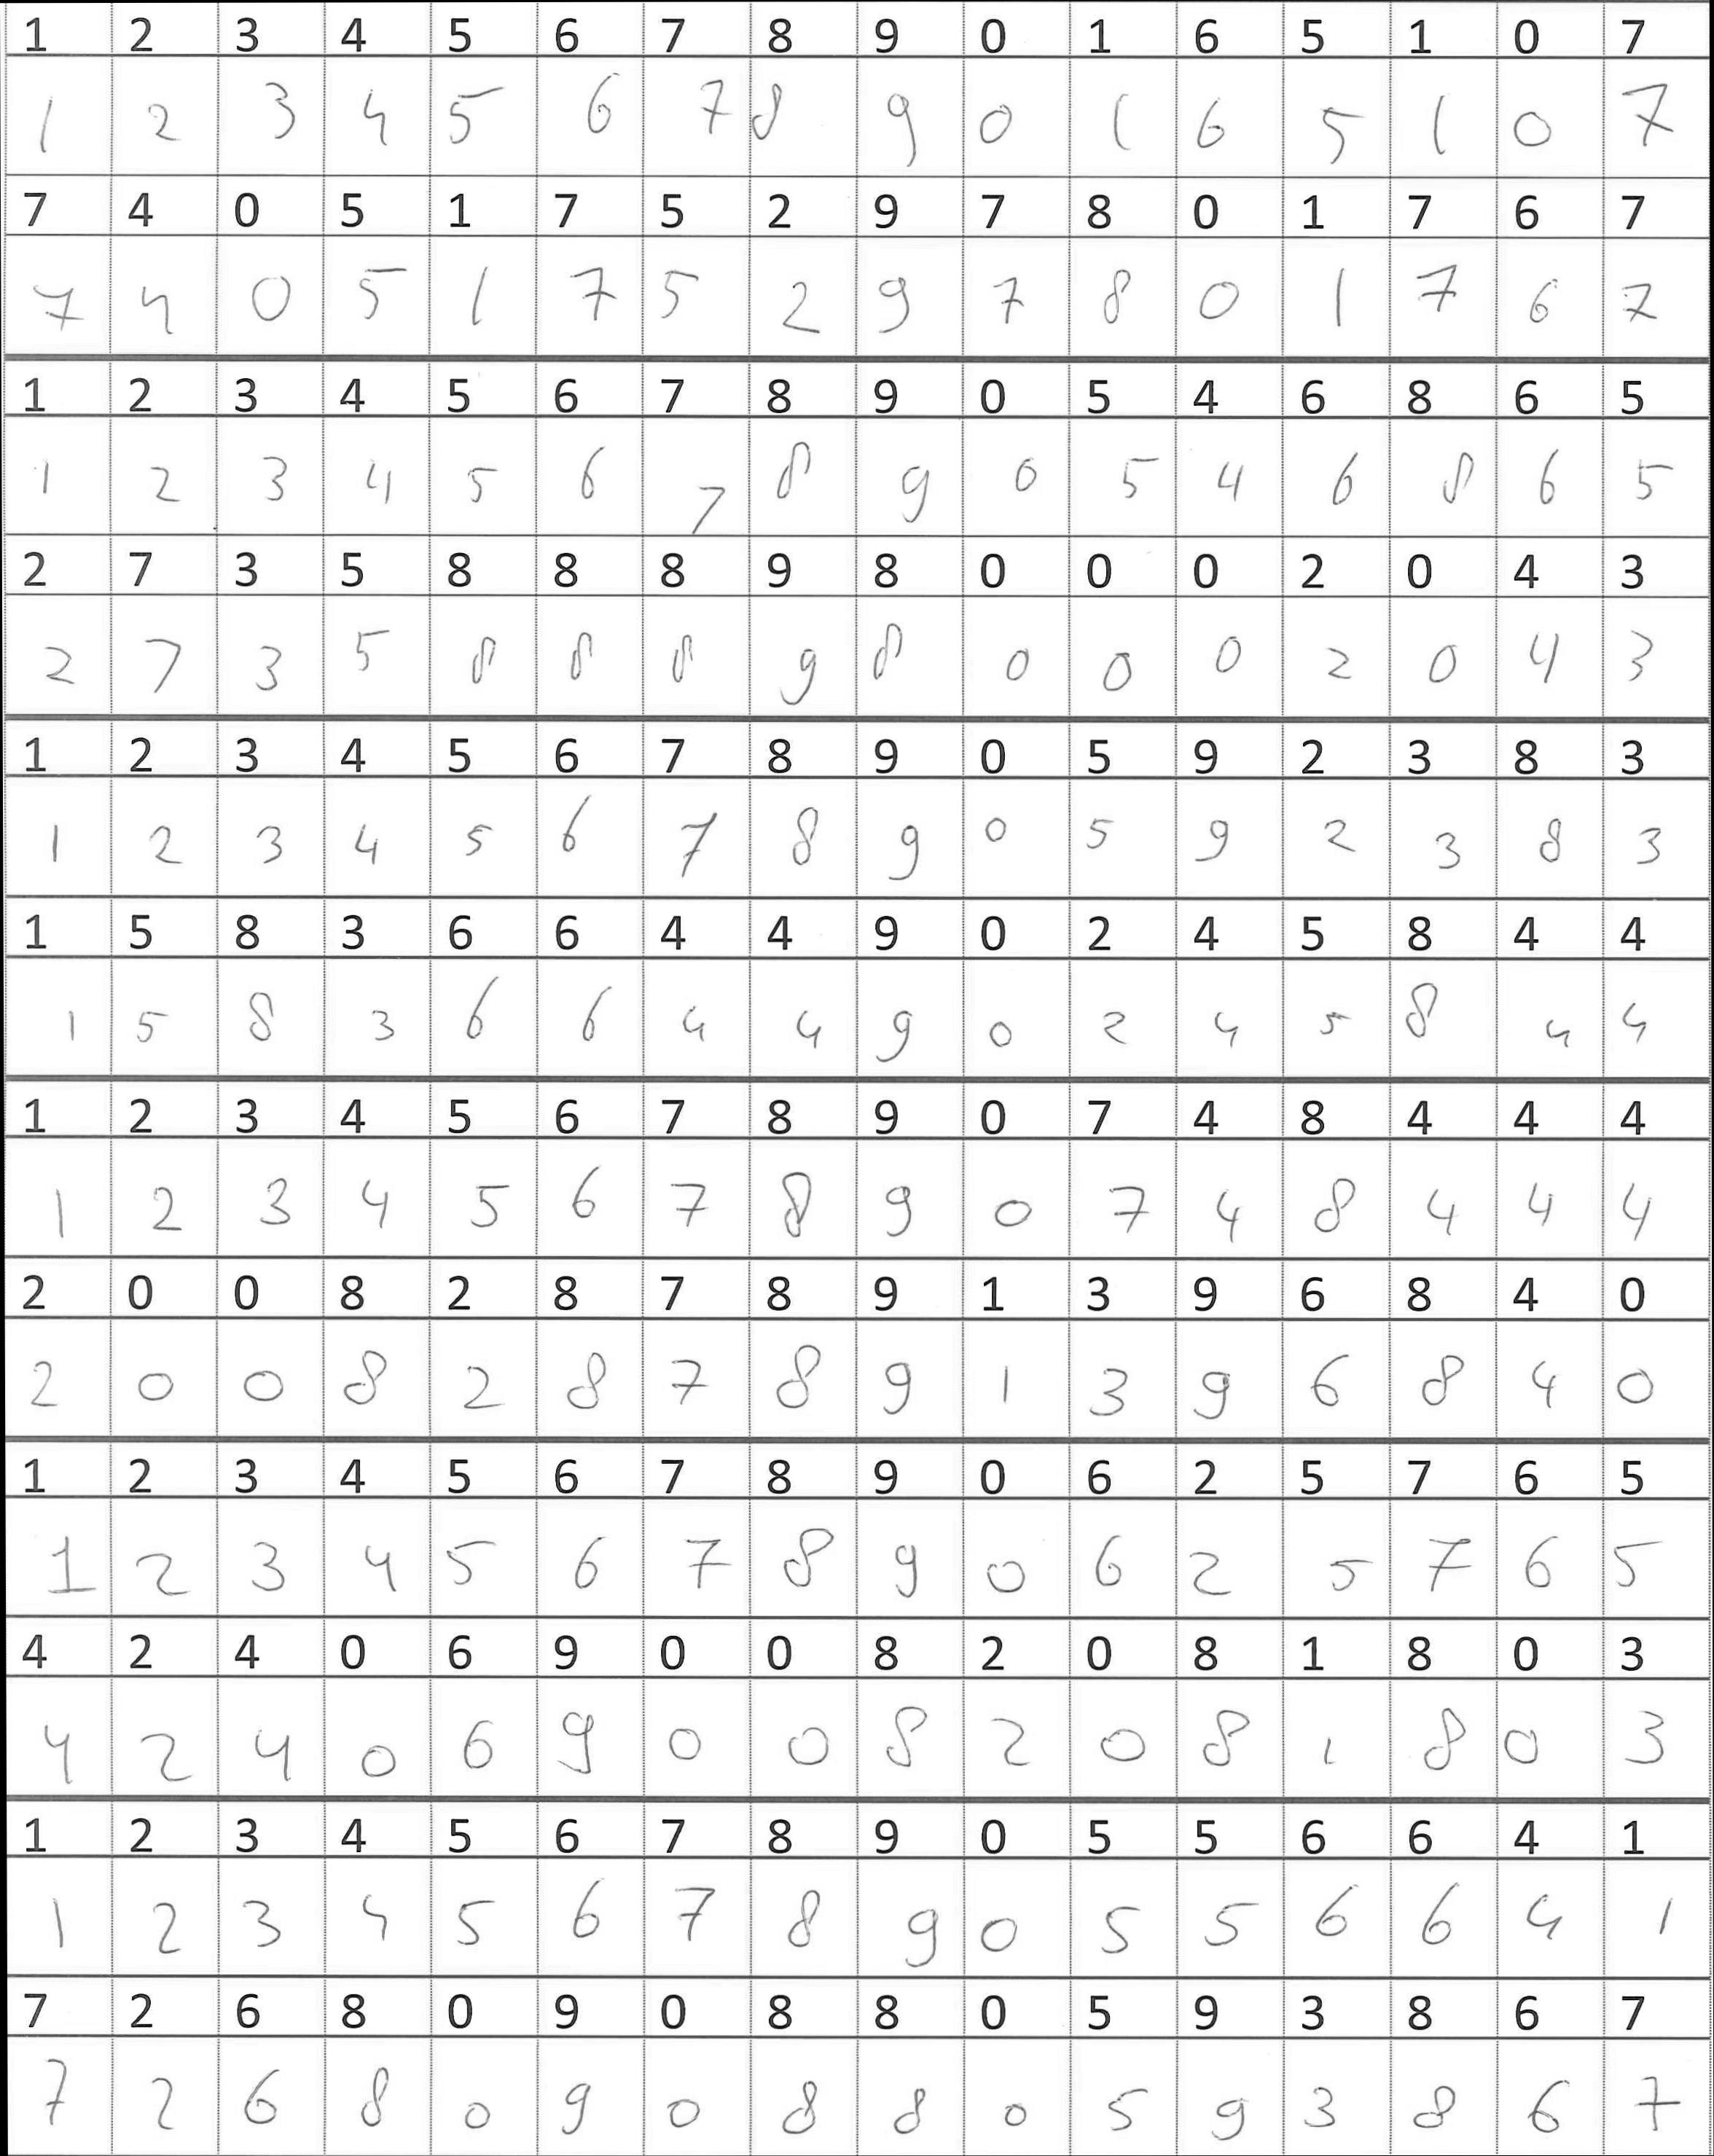 1 2 3 4 5 6 7 8 9 0 1 6 5 1 0 7
1 2 3 4 5 6 7 8 9 0 1 6 5 1 0 7
7 4 0 5 1 7 5 2 9 7 8 0 1 7 6 7
7 4 0 5 1 7 5 2 9 7 8 0 1 7 6 7
1 2 3 4 5 6 7 8 9 0 5 4 6 8 6 5
1 2 3 4 5 6 7 8 9 0 5 4 6 8 6 5
2 7 3 5 8 8 8 9 8 0 0 0 2 0 4 3
2 7 3 5 8 8 8 9 8 0 0 0 2 0 4 3
1 2 3 4 5 6 7 8 9 0 5 9 2 3 8 3
1 2 3 4 5 6 7 8 9 0 5 9 2 3 8 3
1 5 8 3 6 6 4 4 9 0 2 4 5 8 4 4
1 5 8 3 6 6 4 4 9 0 2 4 5 8 4 4
1 2 3 4 5 6 7 8 9 0 7 4 8 4 4 4
1 2 3 4 5 6 7 8 9 0 7 4 8 4 4 4
2 0 0 8 2 8 7 8 9 1 3 9 6 8 4 0
2 0 0 8 2 8 7 8 9 1 3 9 6 8 4 0
1 2 3 4 5 6 7 8 9 0 6 2 5 7 6 5
1 2 3 4 5 6 7 8 9 0 6 2 5 7 6 5
4 2 4 0 6 9 0 0 8 2 0 8 1 8 0 3
4 2 4 0 6 9 0 0 8 2 0 8 1 8 0 3
1 2 3 4 5 6 7 8 9 0 5 5 6 6 4 1
1 2 3 4 5 6 7 8 9 0 5 5 6 6 4 1
7 2 6 8 0 9 0 8 8 0 5 9 3 8 6 7
7 2 6 8 0 9 0 8 8 0 5 9 3 8 6 7